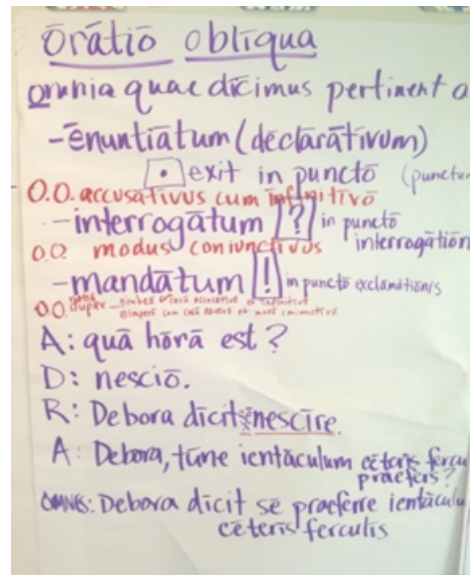 ōrātiō oblīqua
omnia quae dīcimus pertinent a
-ēnuntiātum (dēclārātīvum)
. exit in punctō (punctum
O.O. accusātīvus cum īnfīnitīvō
-interrogātum [?] in punctō
interrogātiōn
O.O. modus coniunctīvus
-mandātum [!] in punctō exclāmātiōnis
O.O. duplex
A: quā hōrā est?
D: nesciō.
R: Debora dīcit sē nescīre.
A: Debora, tūne ientāculum cēterīs fercu
praefers?
OMNES: Debora dīcit sē praeferre ientācul
cēterīs ferculīs